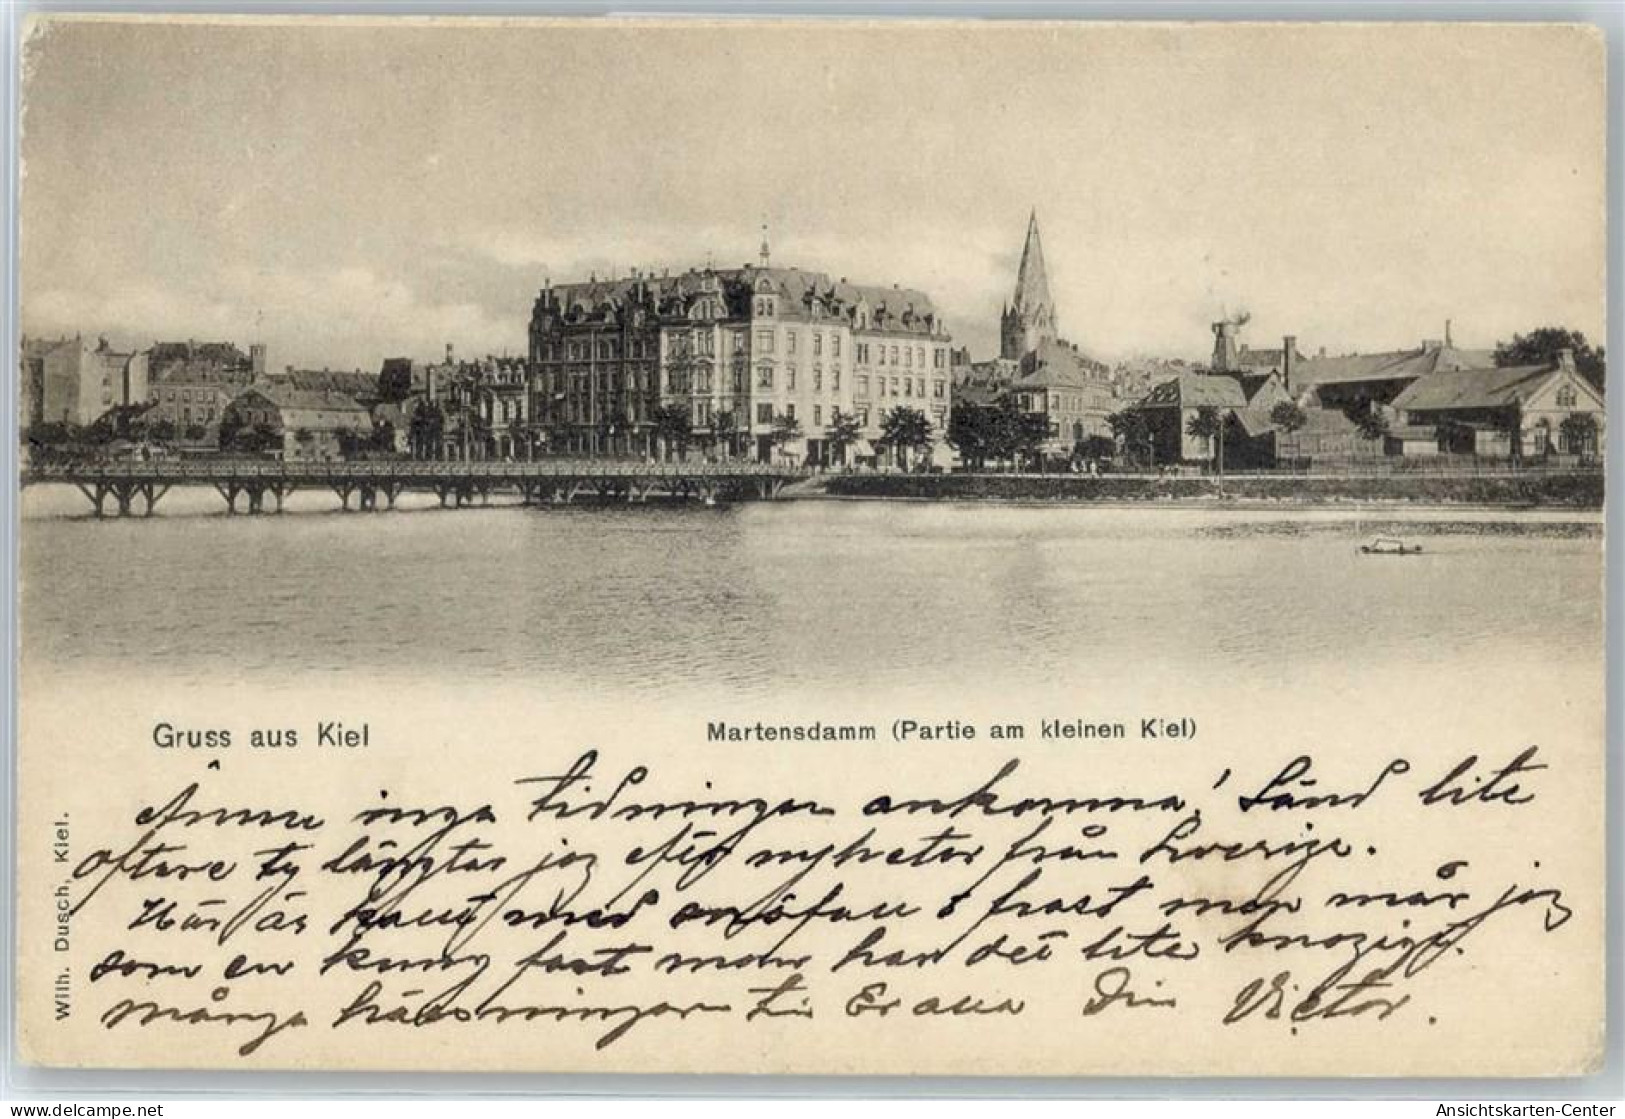 Gruss aus Kiel
Martensdamm (Partie am kleinen Kiel)
Ännu inga tidningar ankomna! Sänd lite
oftare ty längtar jag efter nyheter från Sverige.
Här är kallt med snöfall & frost men mår jag
som en kung fast man har det lite knogigt.
många hälsningar till Er alla Din Victor.
Wilh. Dusch, Kiel.
www.delcampe.net
Ansichtskarten-Center